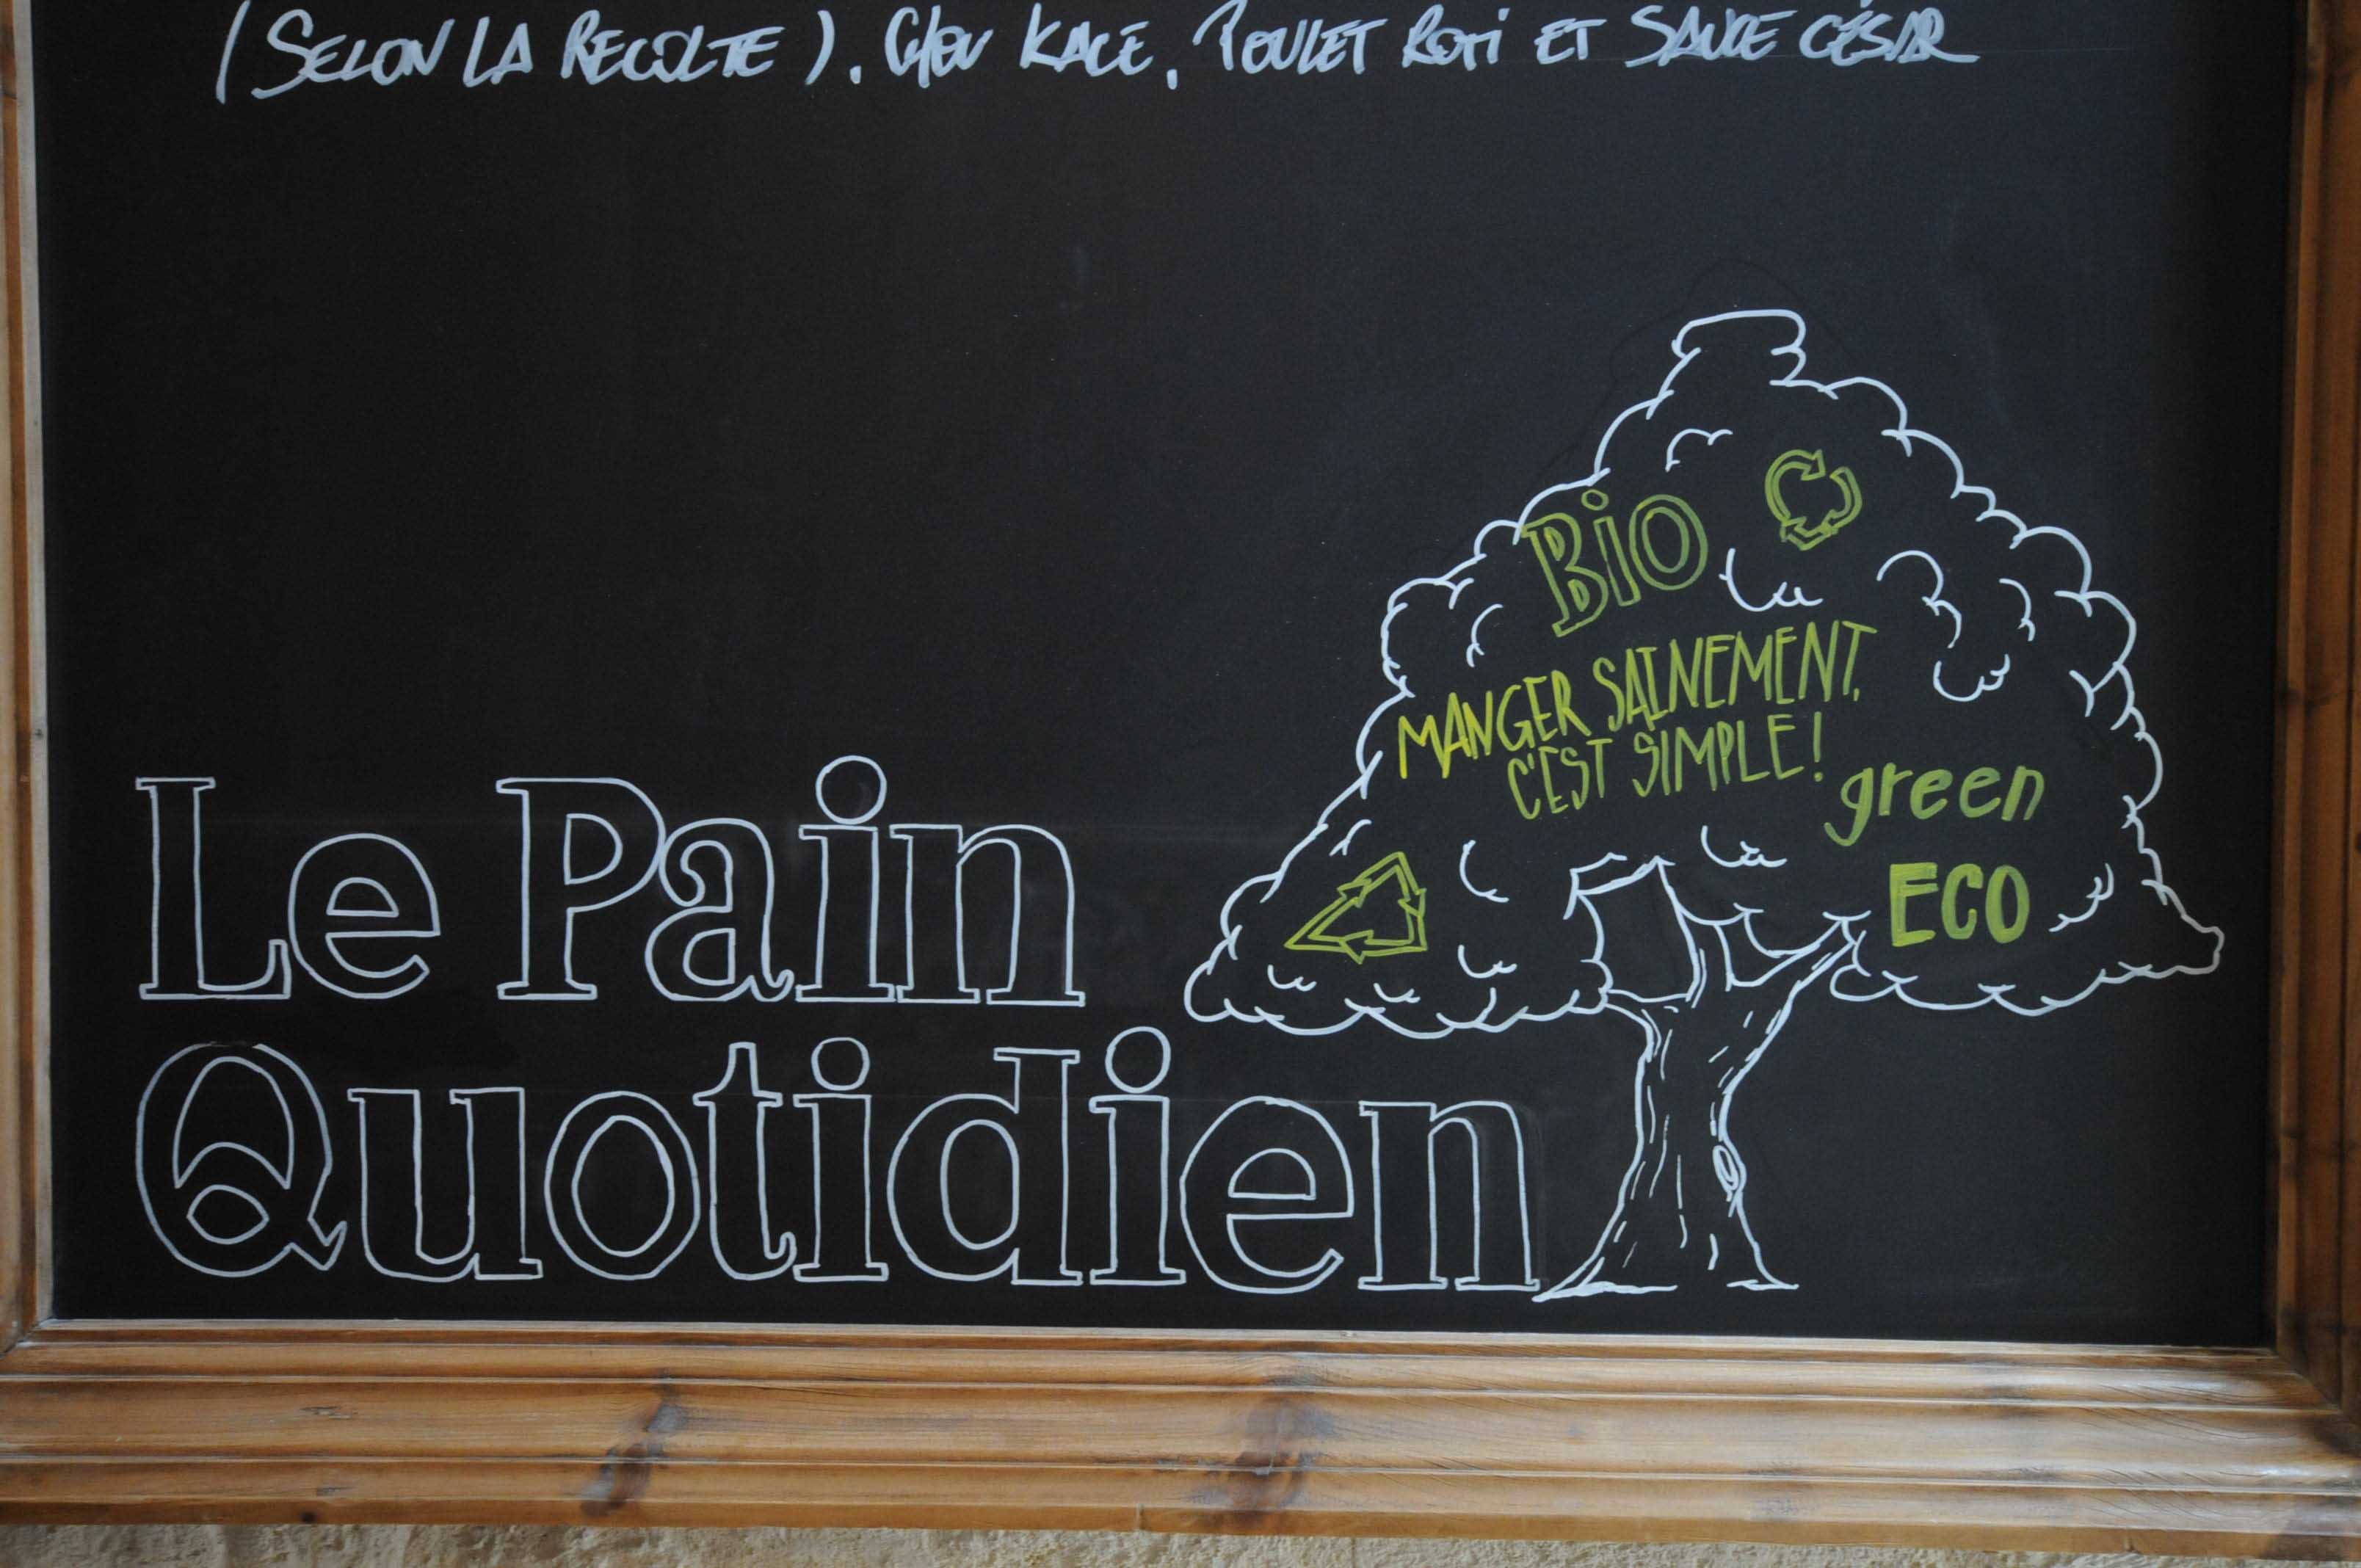 (SELON LA RECOLTE), CHOU KALE, POULET ROTI ET SAUCE CÉSAR
BiO
MANGER SAINEMENT,
C'EST SIMPLE!
green
ECO
Le Pain
Quotidien